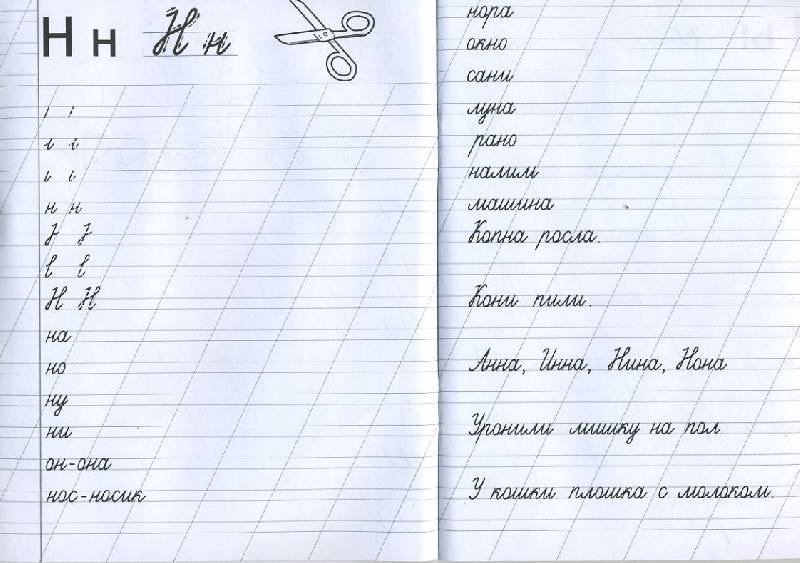 Н н Н н
н н
Н Н
на
но
ну
ни
он-она
нос-носик
нора
окно
сани
луна
рано
налим
машина
Копна росла.
Кони пили.
Анна, Инна, Нина, Нона
Уронили мишку на пол
У кошки плошка с молоком.